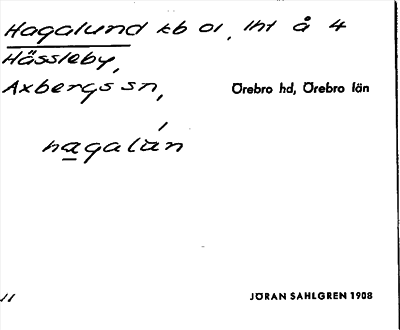 Hagalund tb 01, Int å 4
Hässleby,
Axbergs sn,
Örebro hd, Örebro län
hagalán
11
JÖRAN SAHLGREN 1908